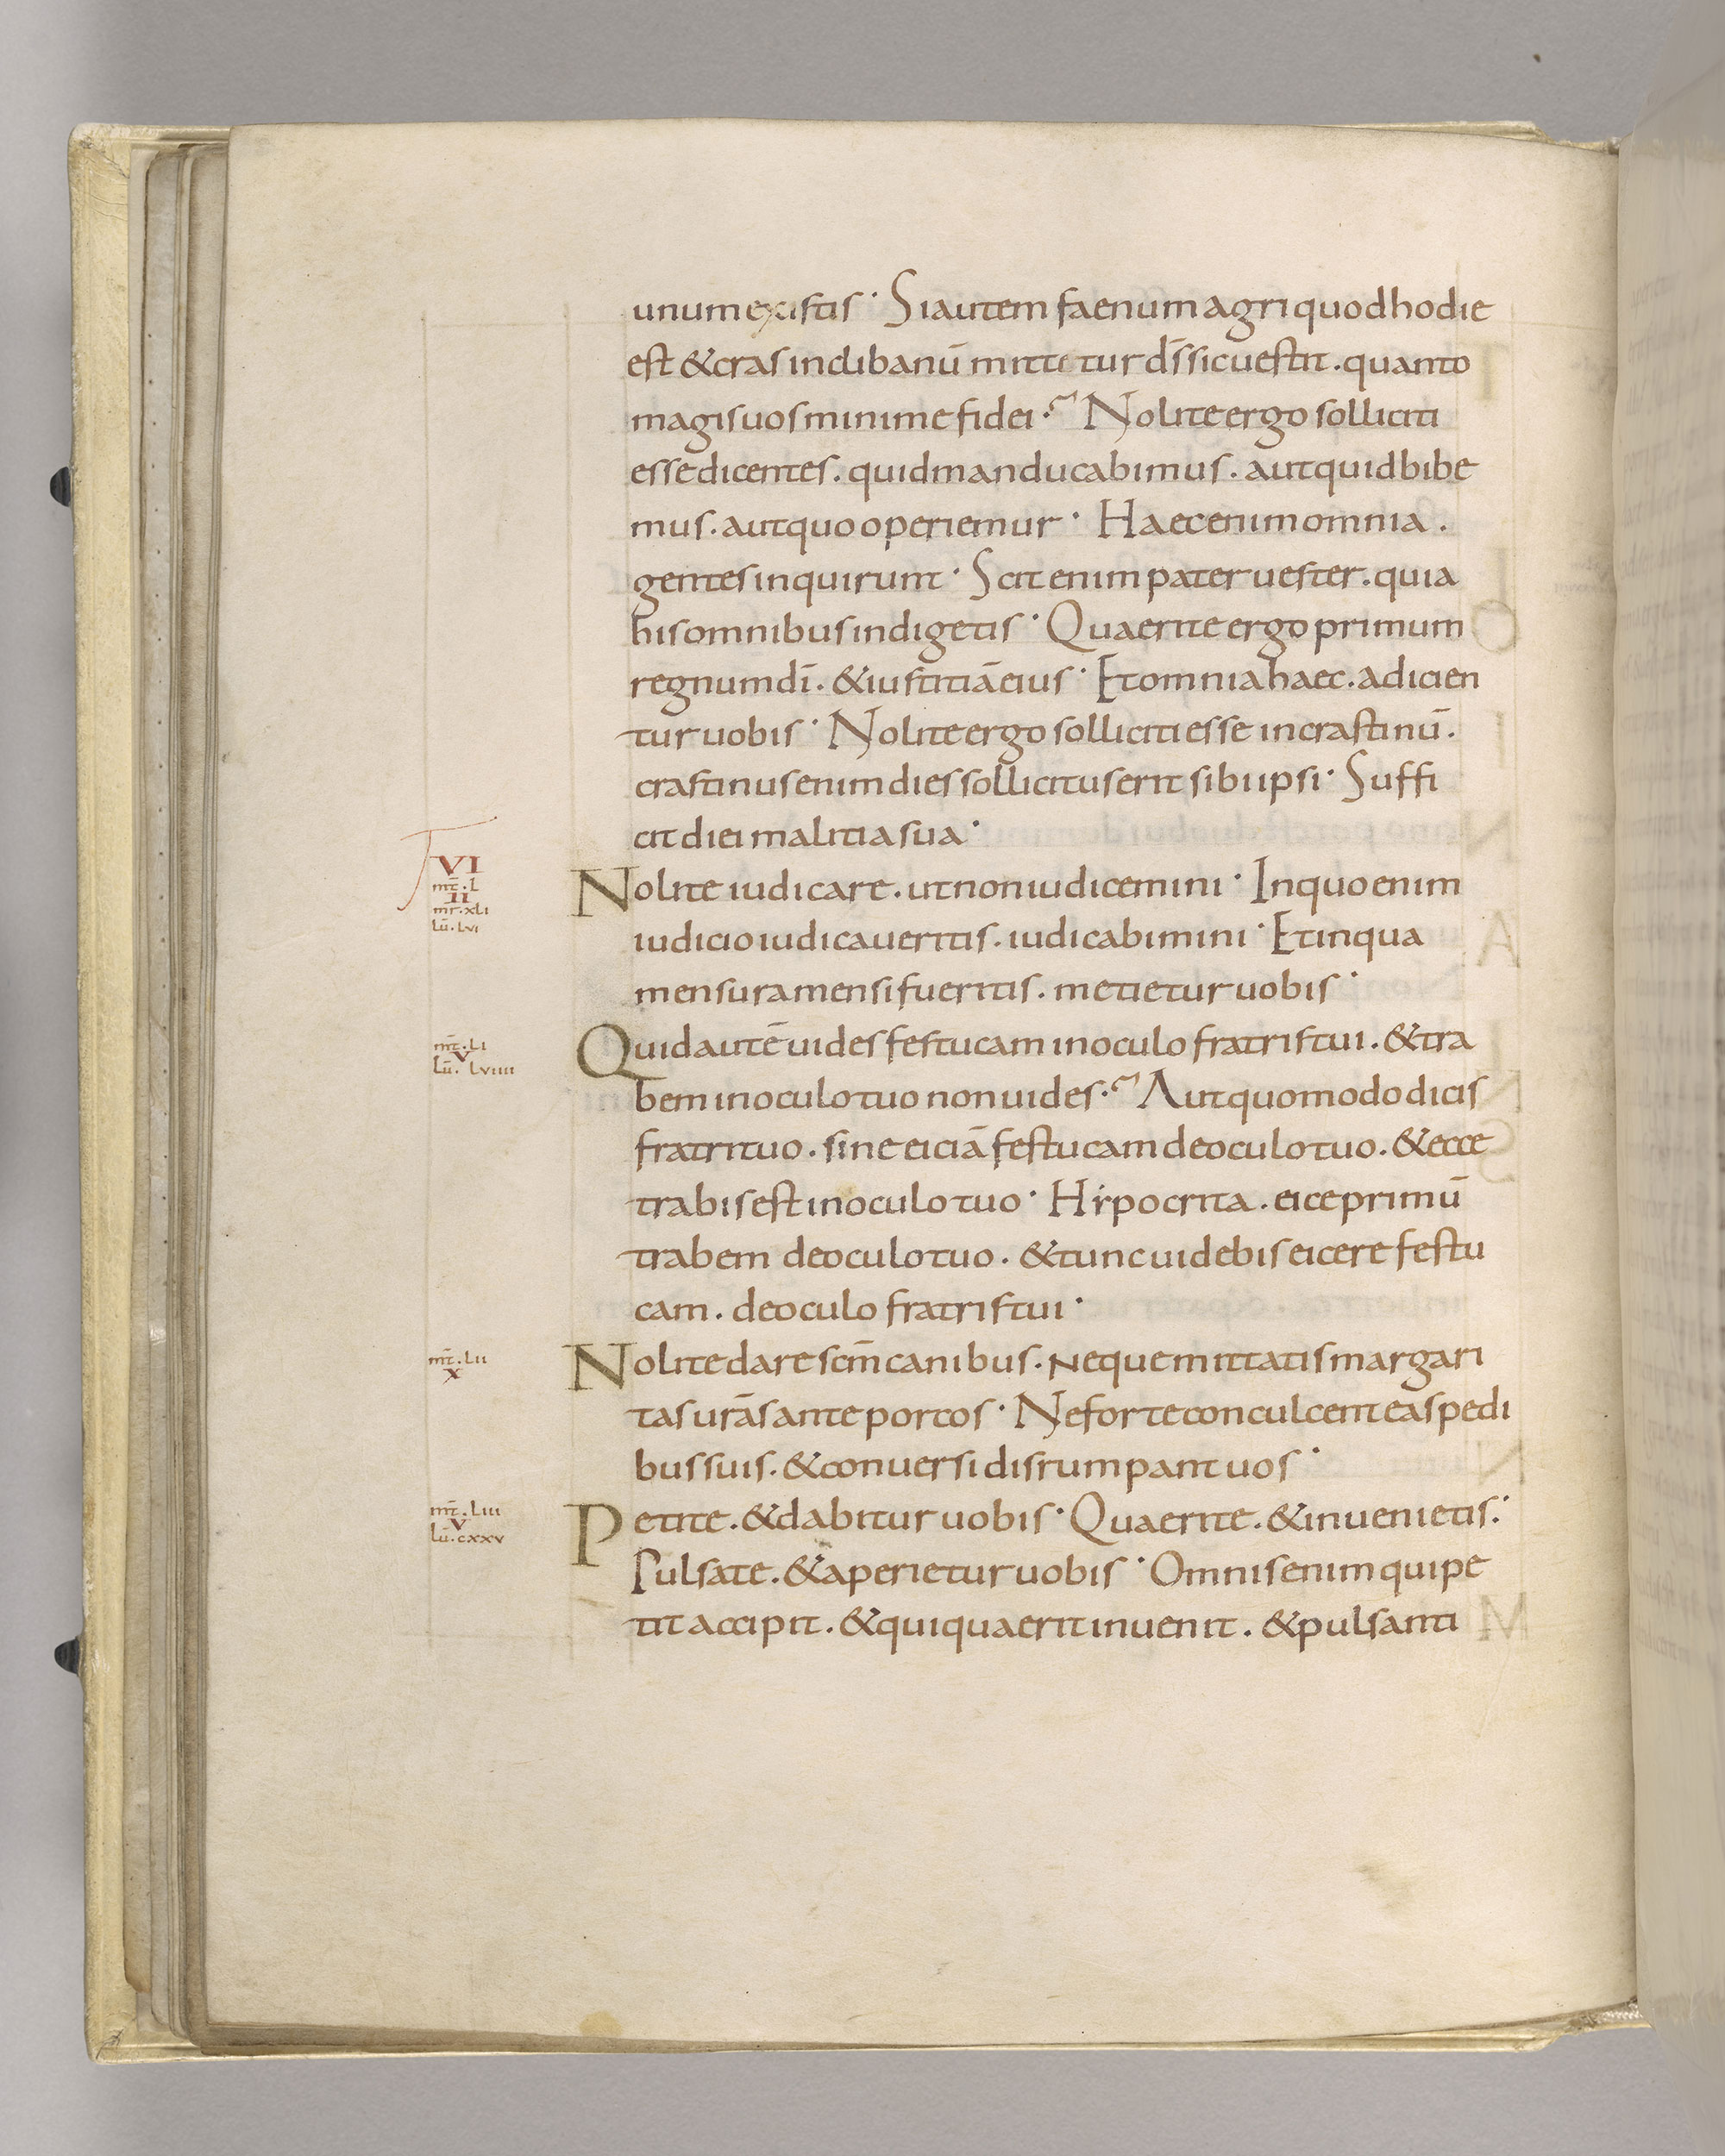 unum ex istis · Si autem faenum agri quod hodie
est & cras in clibanū mittetur d̄s sic uestit . quanto
magis uos minime fidei · Nolite ergo solliciti
esse dicentes . quid manducabimus . aut quid bibe
mus . aut quo operiemur · Haec enim omnia .
gentes inquirunt · Scit enim pater uester . quia
his omnibus indigetis · Quaerite ergo primum
regnum dī . & iustitiā eius · Et omnia haec . adicien
tur uobis · Nolite ergo solliciti esse in crastinū .
crastinus enim dies sollicitus erit sibi ipsi · Suffi
cit diei malitia sua ·
VI
mt̄ . L
II
mr̄ . xLi
Lū . Lvi
Nolite iudicare . ut non iudicemini · In quo enim
iudicio iudicaueritis . iudicabimini · Et in qua
mensura mensi fueritis . metietur uobis ·
mt̄ . Li
V
Lū . Lviiii
Quid autē uides festucam in oculo fratris tui . & tra
bem in oculo tuo non uides · Aut quomodo dicis
fratri tuo . sine eiciā festucam de oculo tuo . & ecce
trabis est in oculo tuo · Hẏpocrita . eice primū
trabem de oculo tuo . & tunc uidebis eicere festu
cam . de oculo fratris tui ·
mt̄ . Lii
X
Nolite dare scm̄ canibus . Neque mittatis margari
tas urās ante porcos · Ne forte conculcent eas pedi
bus suis . & conuersi disrumpant uos ·
mt̄ . Liii
V
Lū . cxxv
Petite . & dabitur uobis · Quaerite . & inuenietis .·
Pulsate . & aperietur uobis · Omnis enim qui pe
tit accipit . & qui quaerit inuenit . & pulsanti